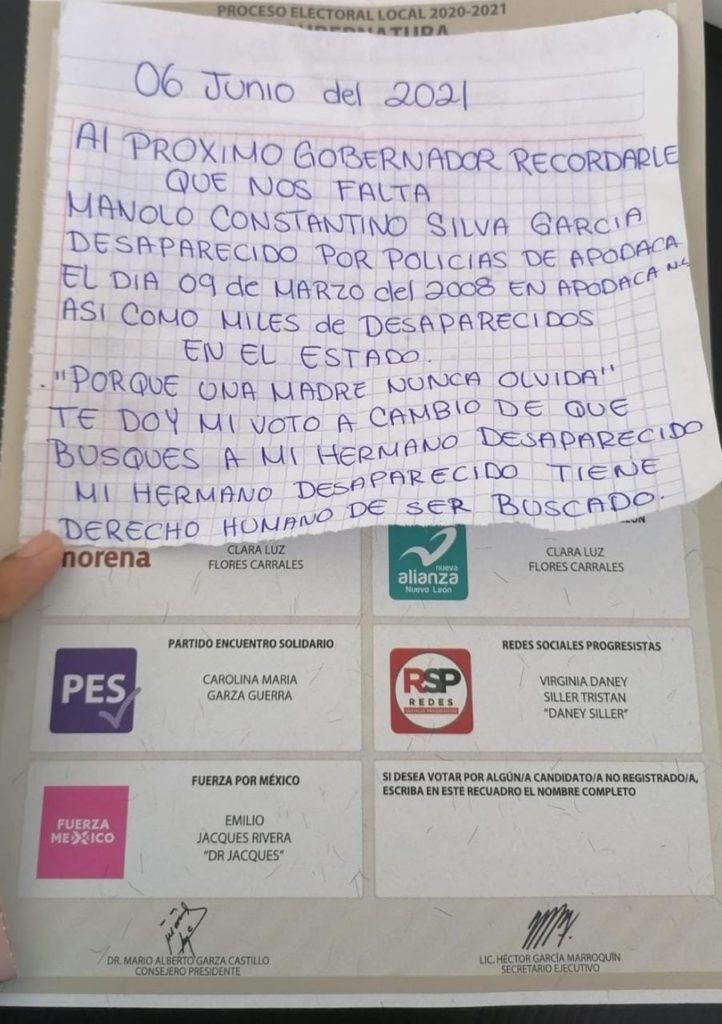 PROCESO ELECTORAL LOCAL 2020-2021
GUBERNATURA
06 JUNIO del 2021
Al PROXIMO GOBERNADOR RECORDARLE
QUE NOS FALTA
MANOLO CONSTANTINO SILVA GARCIA
DESAPARECIDO POR POLICIAS DE APODACA
EL DIA 09 de MARZO del 2008 EN APODACA N.L
ASI COMO MILES de DESAPARECIDOS
EN EL ESTADO.
."PORQUE UNA MADRE NUNCA OLVIDA"
TE DOY MI VOTO A CAMBIO DE QUE
BUSQUES A MI HERMANO DESAPARECIDO
MI HERMANO DESAPARECIDO TIENE
DERECHO HUMANO DE SER BUSCADO.
morena
CLARA LUZ
FLORES CARRALES
nueva
alianza
Nuevo León
CLARA LUZ
FLORES CARRALES
PARTIDO ENCUENTRO SOLIDARIO
PES
CAROLINA MARIA
GARZA GUERRA
REDES SOCIALES PROGRESISTAS
RSP
REDES
SOCIALES PROGRESISTAS
VIRGINIA DANEY
SILLER TRISTAN
"DANEY SILLER"
FUERZA POR MÉXICO
FUERZA
MEXICO
EMILIO
JACQUES RIVERA
"DR JACQUES"
SI DESEA VOTAR POR ALGÚN/A CANDIDATO/A NO REGISTRADO/A,
ESCRIBA EN ESTE RECUADRO EL NOMBRE COMPLETO
DR. MARIO ALBERTO GARZA CASTILLO
CONSEJERO PRESIDENTE
LIC. HÉCTOR GARCÍA MARROQUÍN
SECRETARIO EJECUTIVO